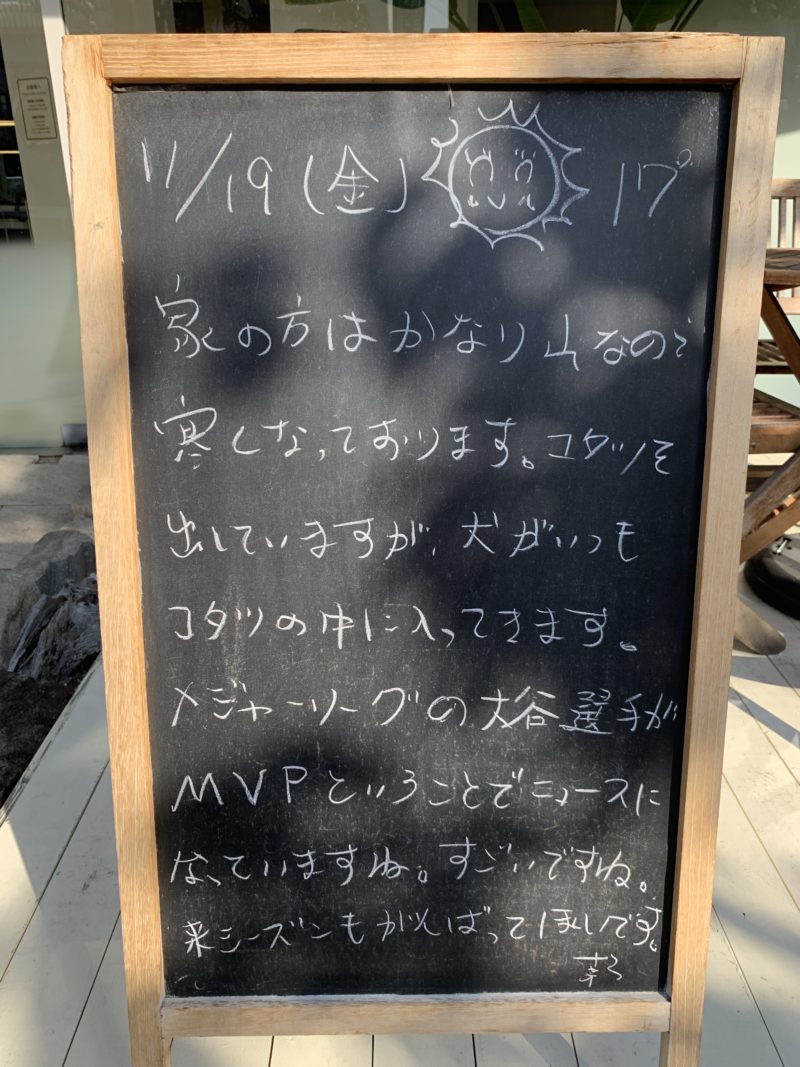 11/19(金) 17°
家の方はかなり山なので
寒くなっております。コタツを
出していますが、犬がいつも
コタツの中に入ってきます。
メジャーリーグの大谷選手が
MVPということでニュースに
なっていますね。すごいですね。
来シーズンもがんばってほしいです。